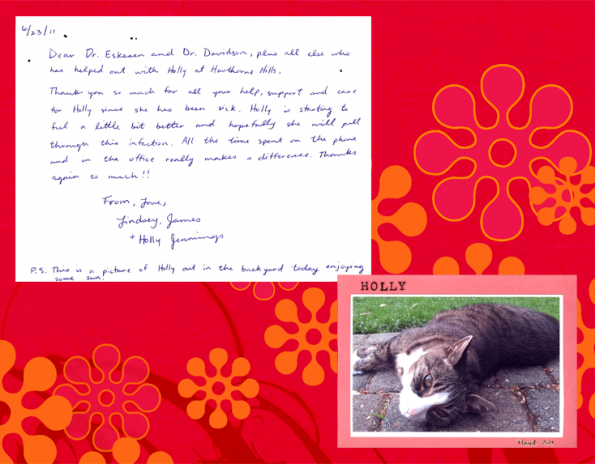 6/23/11
Dear Dr. Eskesen and Dr. Davidson, plus all else who
has helped out with Holly at Hawthorne Hills.
Thank you so much for all your help, support and care
for Holly since she has been sick. Holly is starting to
feel a little bit better and hopefully she will pull
through this infection. All the time spent on the phone
and in the office really makes a difference. Thanks
again so much!!
From, Love,
Lindsey, James
+ Holly Jennings
P.S. This is a picture of Holly out in the backyard today enjoying
some sun!
HOLLY